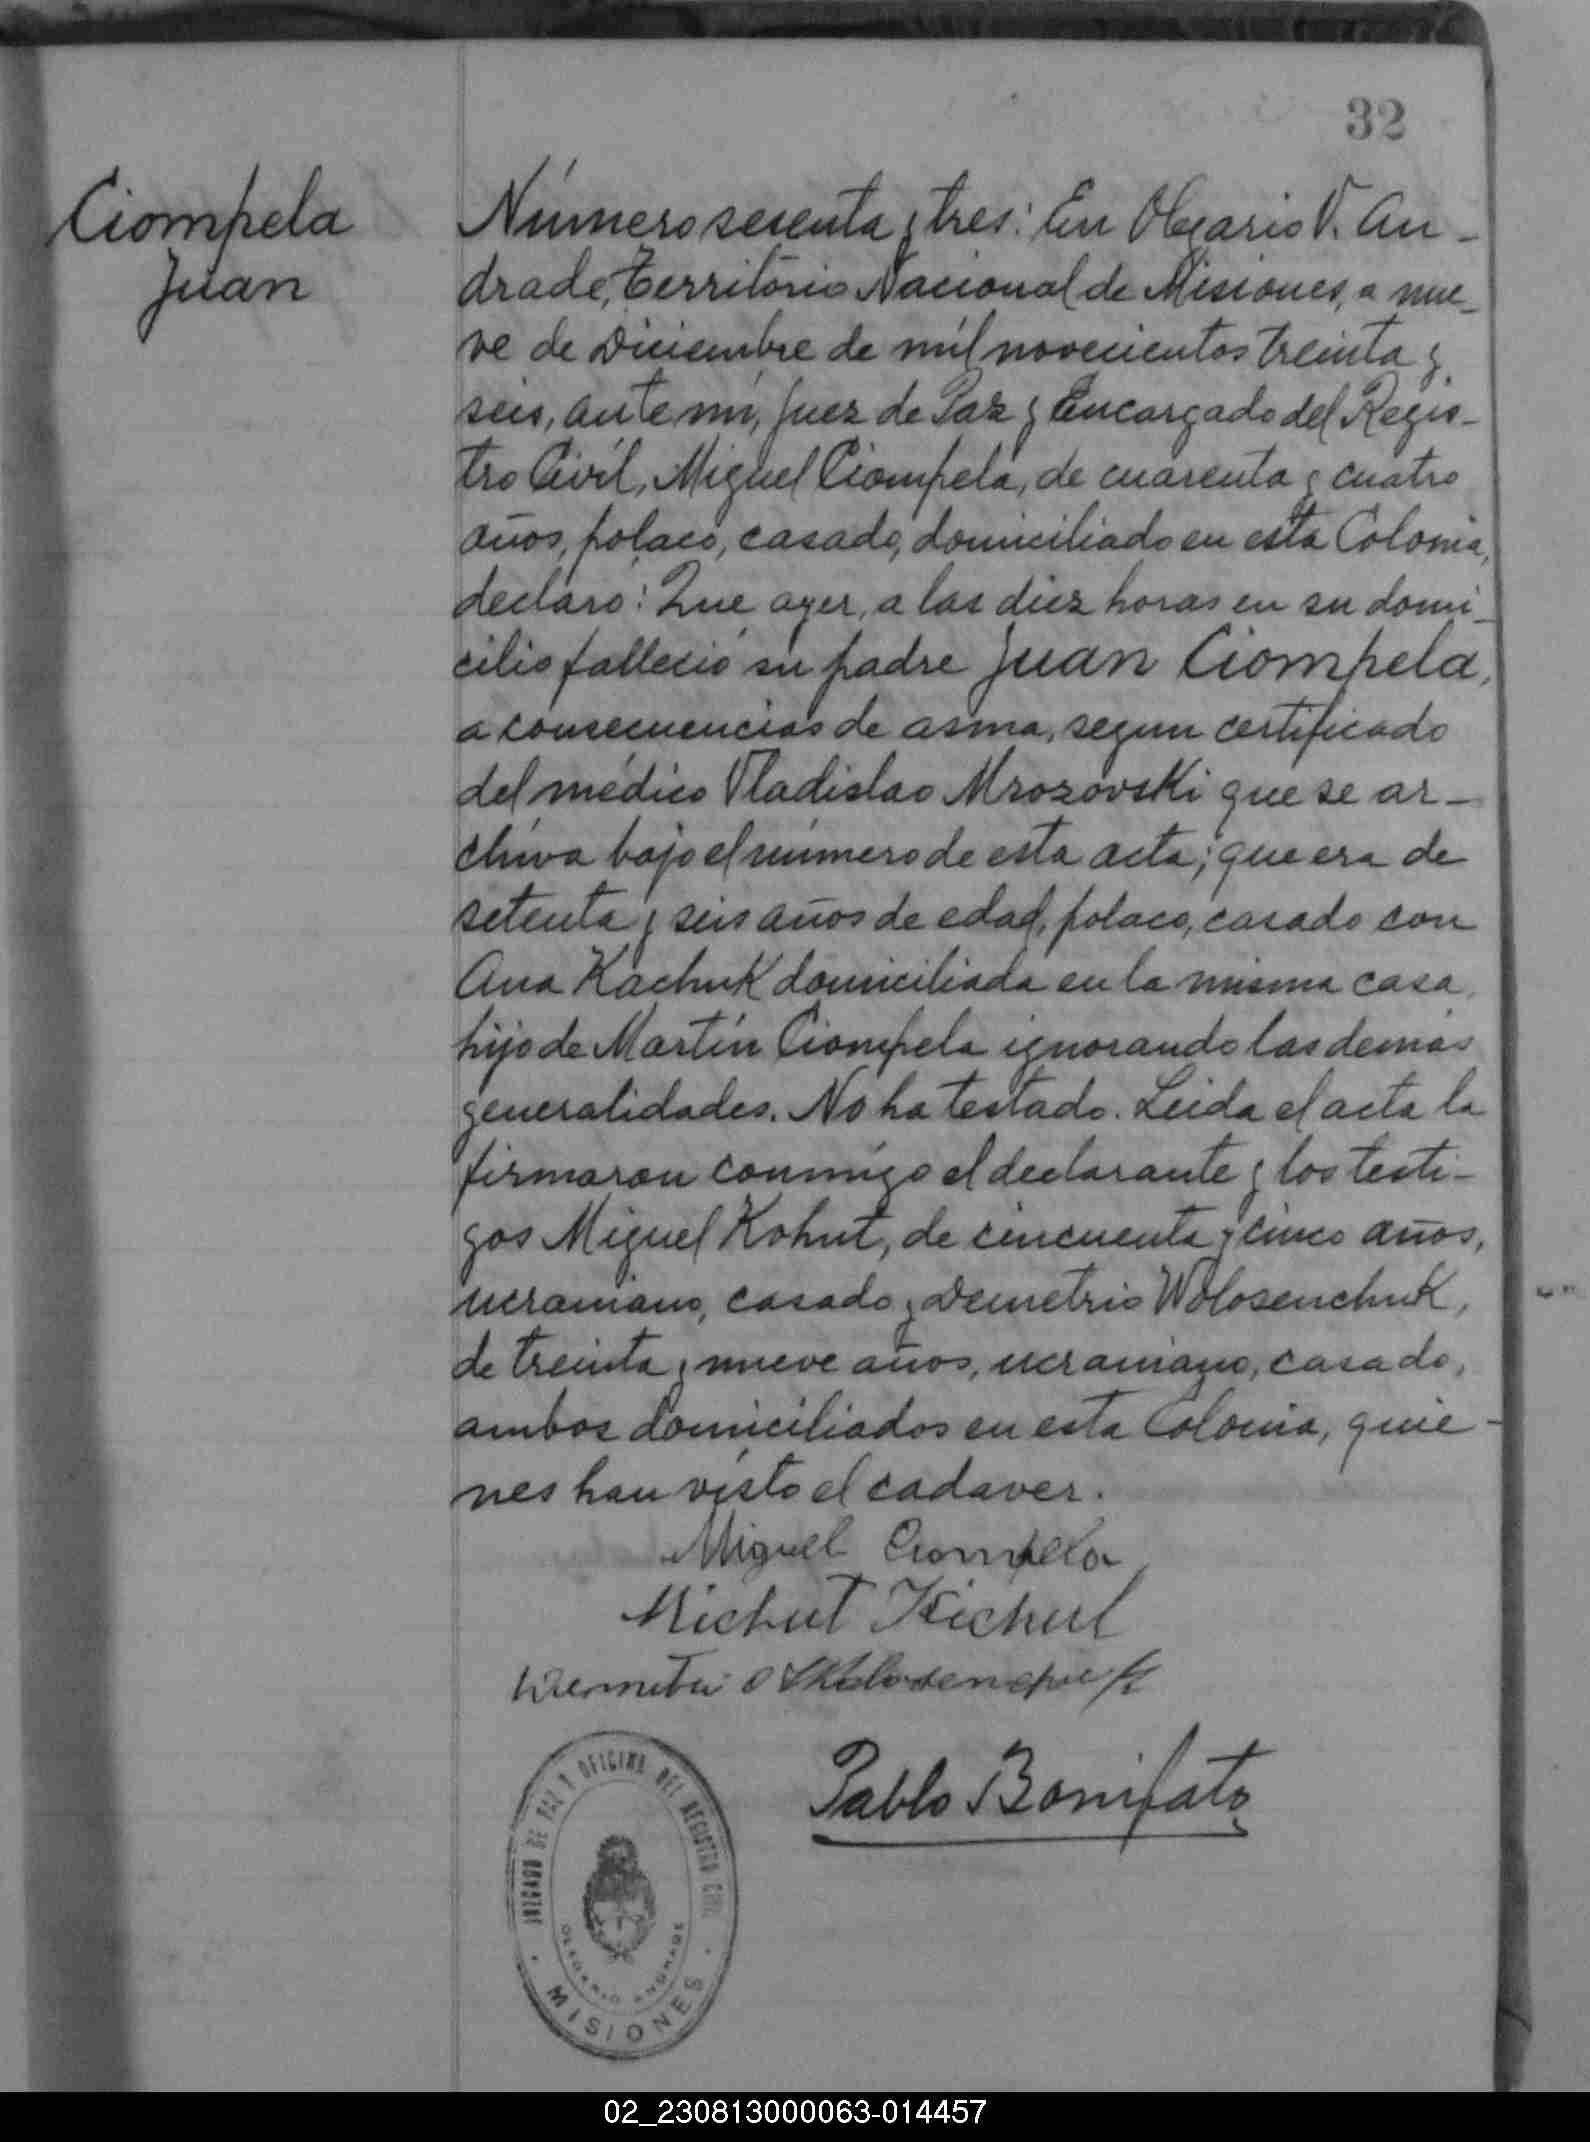 32
Ciompela
Juan
Número sesenta y tres: En Olegario V. An-
drade, Territorio Nacional de Misiones, a nue-
ve de Diciembre de mil novecientos treinta y
seis, ante mí, Juez de Paz y Encargado del Regis-
tro Civil, Miguel Ciompela, de cuarenta y cuatro
años, polaco, casado, domiciliado en esta Colonia,
declaro: Que ayer, a las diez horas en su domi-
cilio falleció su padre Juan Ciompela,
a consecuencias de asma, segun certificado
del médico Vladislao Mrozovski que se ar-
chiva bajo el número de esta acta; que era de
setenta y seis años de edad, polaco, casado con
Ana Kachuk domiciliada en la misma casa,
hijo de Martín Ciompela ignorando las demás
generalidades. No ha testado. Leida el acta la
firmaron conmigo el declarante y los testi-
gos Miguel Kohut, de cincuenta y cinco años,
ucraniano, casado y Demetrio Wolosenchuk,
de treinta y nueve años, ucraniano, casado,
ambos domiciliados en esta Colonia, quie-
nes han visto el cadaver.
Miguel Ciompela
Pablo Bonifato
JUZGADO DE PAZ Y OFICINA DEL REGISTRO CIVIL
OLEGARIO ANDRADE
MISIONES
02_230813000063-014457